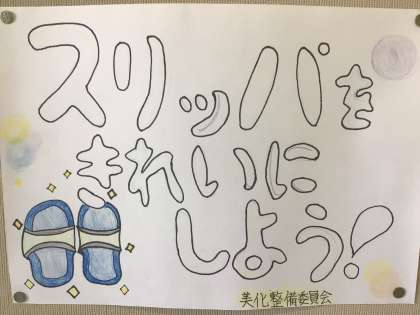 スリッパを
きれいに
しよう!
美化整備委員会